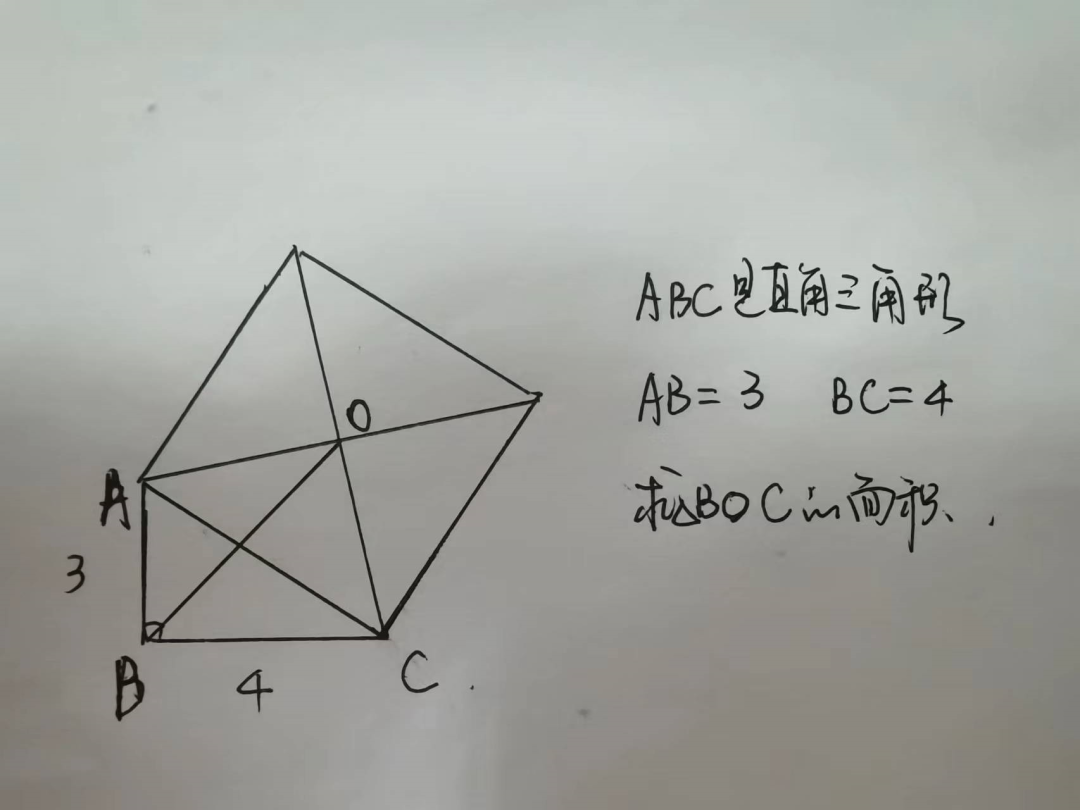 O
A
3
B
4
C
ABC是直角三角形
AB=3 BC=4
求△BOC的面积.